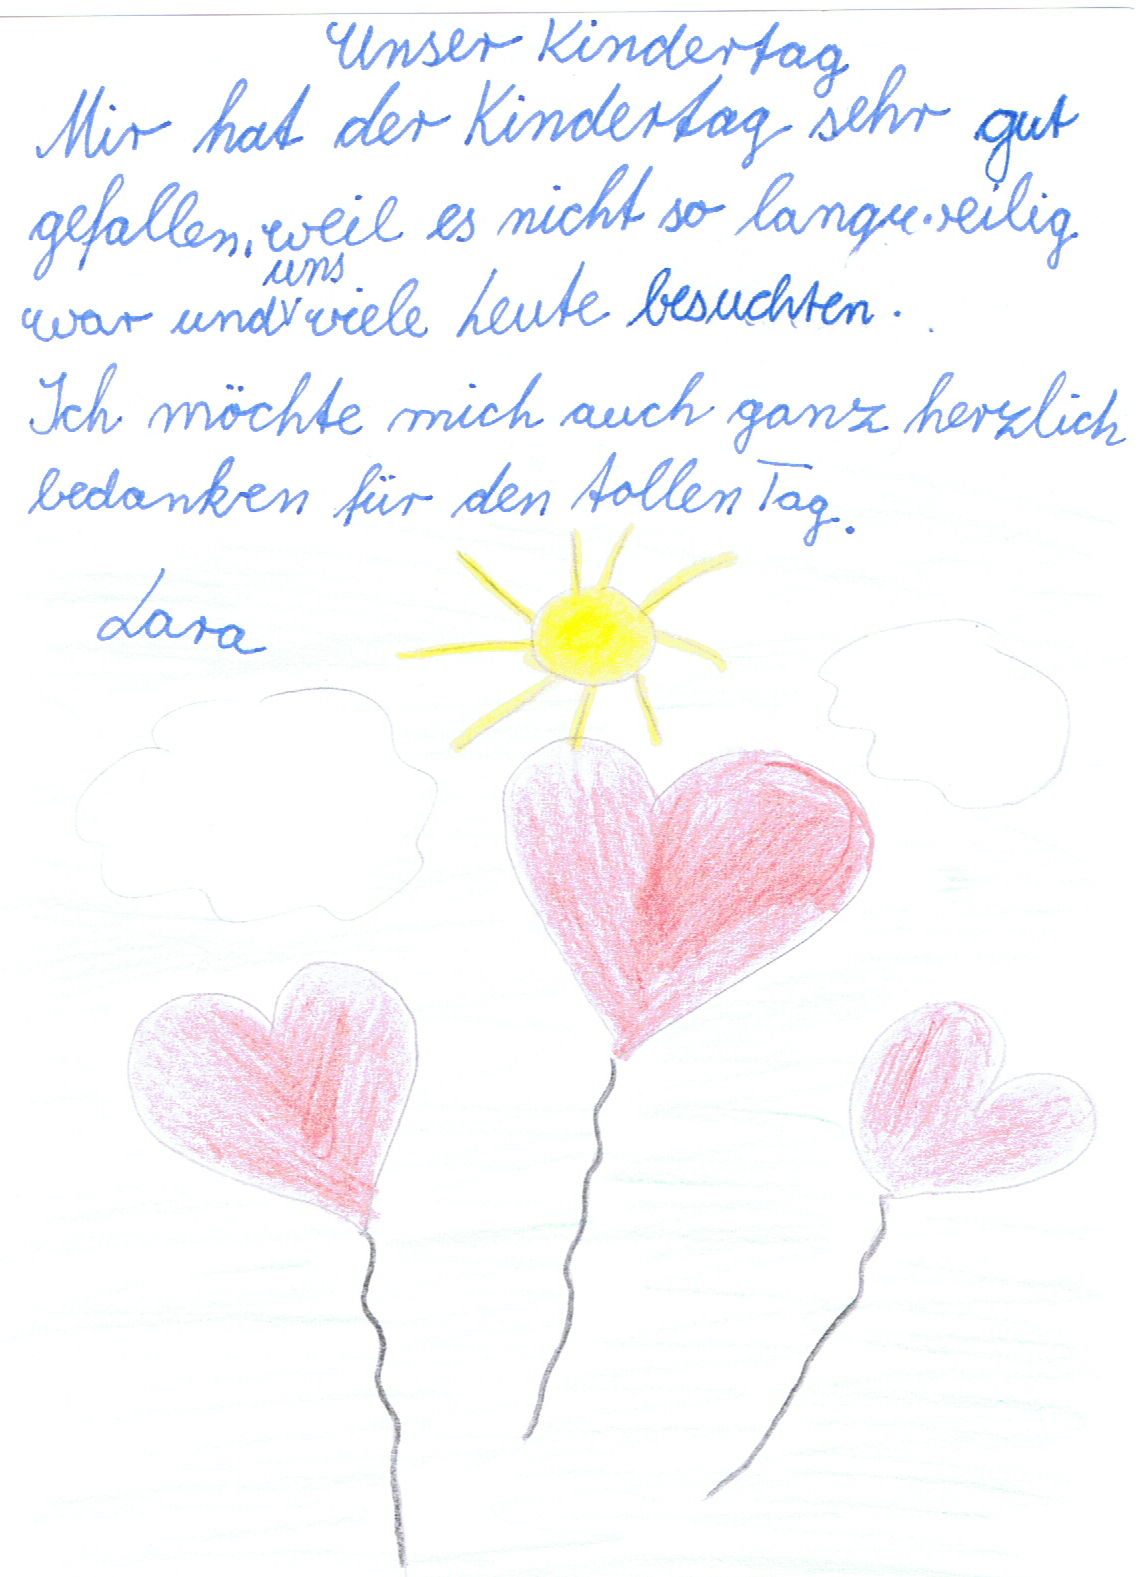 Unser Kindertag
Mir hat der Kindertag sehr gut
gefallen, weil es nicht so langweilig
uns
war und viele Leute besuchten.
Ich möchte mich auch ganz herzlich
bedanken für den tollen Tag.
Lara